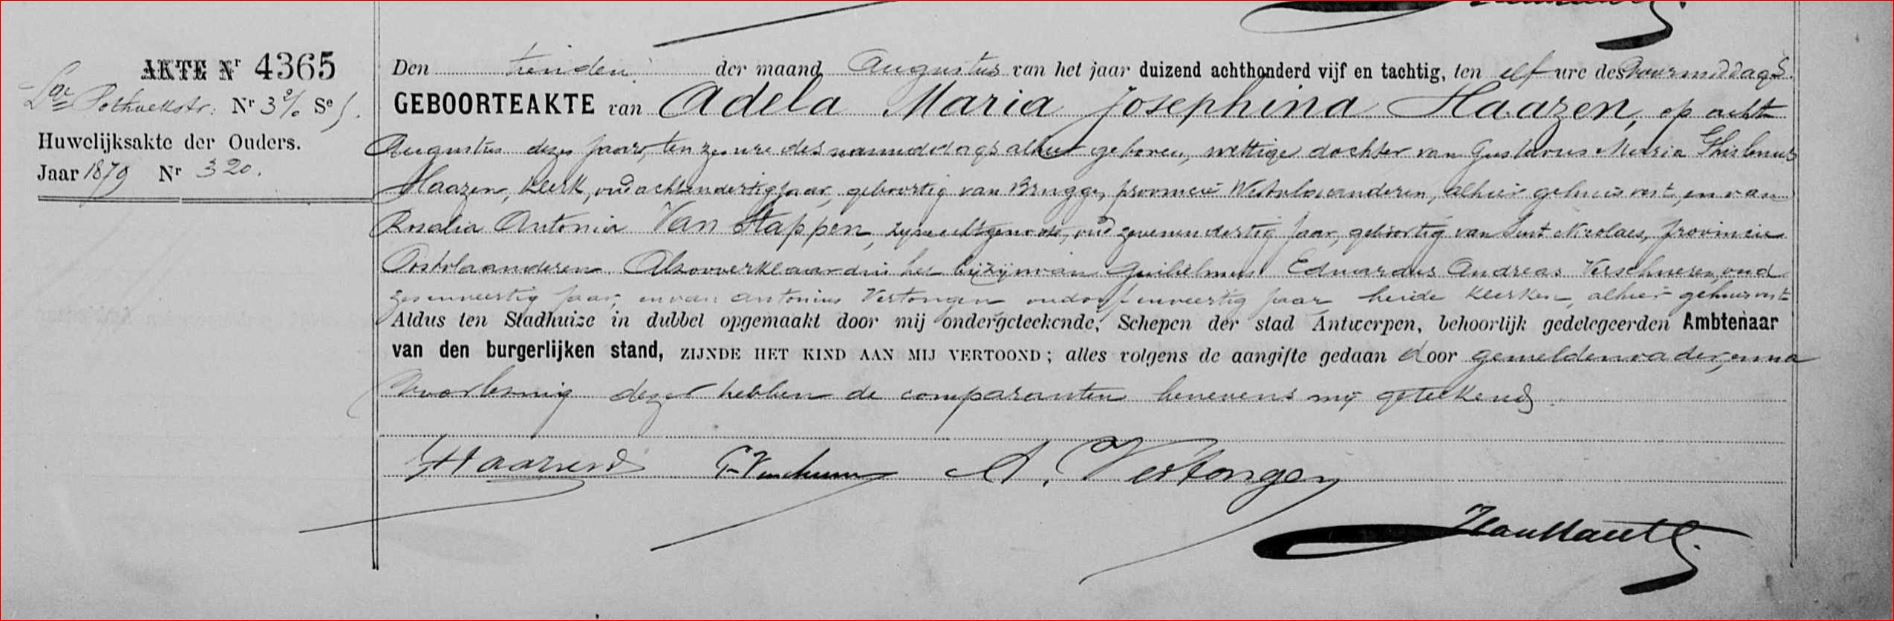 AKTE Nr 4365
Lge Pothoekstr. Nr 3 Se 5.
Huwelijksakte der Ouders.
Jaar 1879 Nr 320.
Den tienden der maand Augustus van het jaar duizend achthonderd vijf en tachtig, ten elf ure des Voormiddags.
GEBOORTEAKTE van Adela Maria Josephina Haazen, op acht
Augustus dezes jaars, ten zes ure des namiddags alhier geboren, wettige dochter van Gustavus Maria Ghislenus
Haazen, klerk, oud achtendertig jaar, geboortig van Brugge, provincie Westvlaanderen, alhier gehuisvest, en van
Rosalia Antonia Van Stappen, zyne echtgenoote, oud zevenendertig jaar, geboortig van Sint Nicolaes, provincie
Oostvlaanderen. Alzoo verklaard in het byzyn van Guilielmus Eduardus Andreas Verschueren, oud
zesenveertig jaar, en van Antonius Vertongen oud enveertig jaar beide klerken, alhier gehuisvest
Aldus ten Stadhuize in dubbel opgemaakt door mij ondergeteekende, Schepen der stad Antwerpen, behoorlijk gedelegeerden Ambtenaar
van den burgerlijken stand, ZIJNDE HET KIND AAN MIJ VERTOOND; alles volgens de aangifte gedaan door gemelden vader, en na
Voorlezing dezer hebben de comparanten benevens my geteekend.
GHaazen A. Vertongen